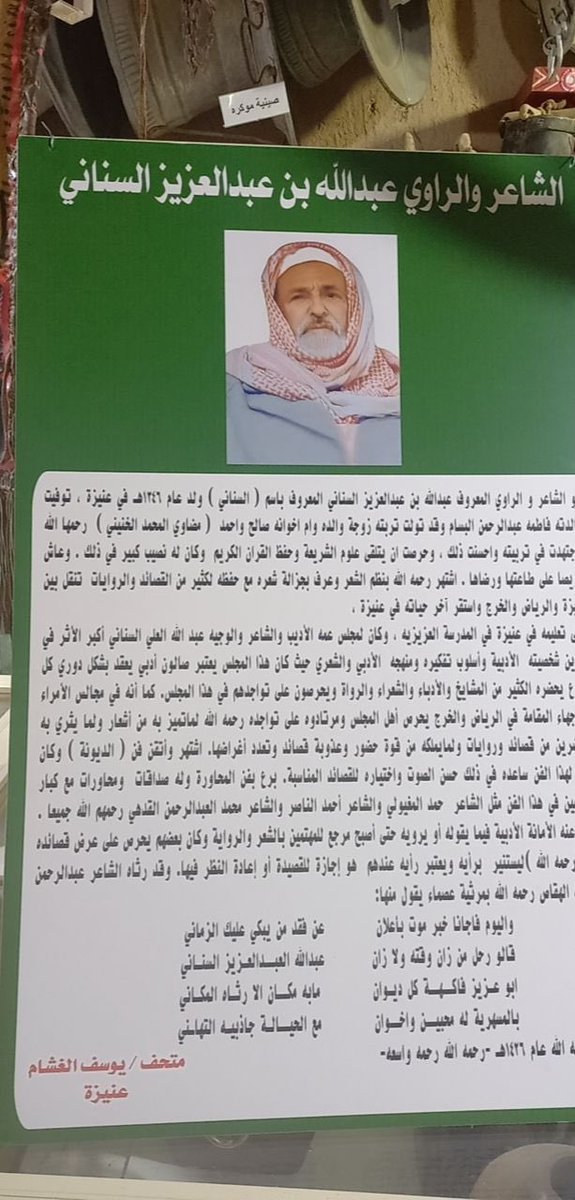 صينية موكره
الشاعر والراوي عبدالله بن عبدالعزيز السناني
الشاعر و الراوي المعروف عبدالله بن عبدالعزيز السناني المعروف باسم ( السناني ) ولد عام ١٣٤٦هـ في عنيزة ، توفيت
فاطمه عبدالرحمن البسام وقد تولت تربته زوجة والده وام اخوانه صالح واحمد ( مضاوي المحمد الخنيني ) رحمها الله
في تربيته واحسنت ذلك ، وحرصت ان يتلقى علوم الشريعة وحفظ القران الكريم وكان له نصيب كبير في ذلك . وعاش
على طاعتها ورضاها . اشتهر رحمه الله بنظم الشعر وعرف بجزالة شعره مع حفظه لكثير من القصائد والروايات تنقل بين
والرياض والخرج واستقر آخر حياته في عنيزة .
تعليمه في عنيزة في المدرسة العزيزيه ، وكان لمجلس عمه الأديب والشاعر والوجيه عبد الله العلي السناني أكبر الأثر في
شخصيته الأدبية وأسلوب تفكيره ومنهجه الأدبي والشعري حيث كان هذا المجلس يعتبر صالون أدبي يعقد بشكل دوري كل
يحضره الكثير من المشايخ والأدباء والشعراء والرواة ويحرصون على تواجدهم في هذا المجلس. كما أنه في مجالس الأمراء
المقامة في الرياض والخرج يحرص أهل المجلس ومرتادوه على تواجده رحمه الله لماتميز به من أشعار ولما يثري به
من قصائد وروايات ولمايملكه من قوة حضور وعذوبة قصائد وتعدد أغراضها. اشتهر وأتقن فن ( الديونة ) وكان
لهذا الفن ساعده في ذلك حسن الصوت واختياره للقصائد المناسبة. برع بفن المحاورة وله صداقات ومحاورات مع كبار
في هذا الفن مثل الشاعر حمد المغيولي والشاعر أحمد الناصر والشاعر محمد العبدالرحمن القدهي رحمهم الله جميعا .
عنه الأمانة الأدبية فيما يقوله أو يرويه حتى أصبح مرجع للمهتمين بالشعر والرواية وكان بعضهم يحرص على عرض قصائده
رحمه الله )ليستنير برأيه ويعتبر رأيه عندهم هو إجازة للقصيدة أو إعادة النظر فيها. وقد رثاه الشاعر عبدالرحمن
الهقاص رحمه الله بمرثية عصماء يقول منها:
واليوم فاجانا خبر موت بأعلان عن فقد من يبكي عليك الزماني
قالو رحل من زان وقته ولا زان عبدالله العبدالعزيز السناني
ابو عزيز فاكهة كل ديوان مابه مكان الا رثاه المكاني
بالمسهرية له محبين واخوان مع الحيالة جاذبيه التهاني
الله عام ١٤٢٦هـ -رحمه الله رحمه واسعه-
متحف / يوسف الغشام
عنيزة